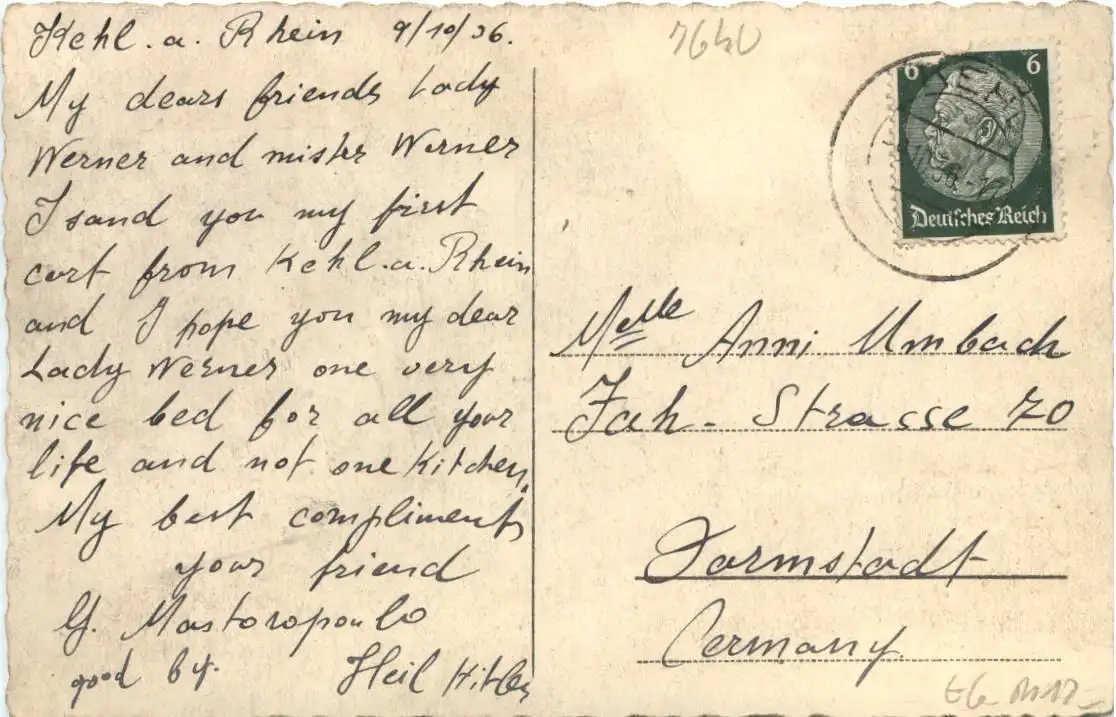 Kehl. a. Rhein 9/10/36.
My dears friends Lady
Werner and mister Werner
I sand you my first
cart from Kehl. a. Rhein
and I hope you my dear
Lady Werner one very
nice bed for all your
life and not one Kitchen.
My best compliments
your friend
G. Mastoropoulo
good by. Heil Hitler
7640
6 6
Deutsches Reich
Melle Anni Umbach
Jah. Strasse 70
Darmstadt
Germany